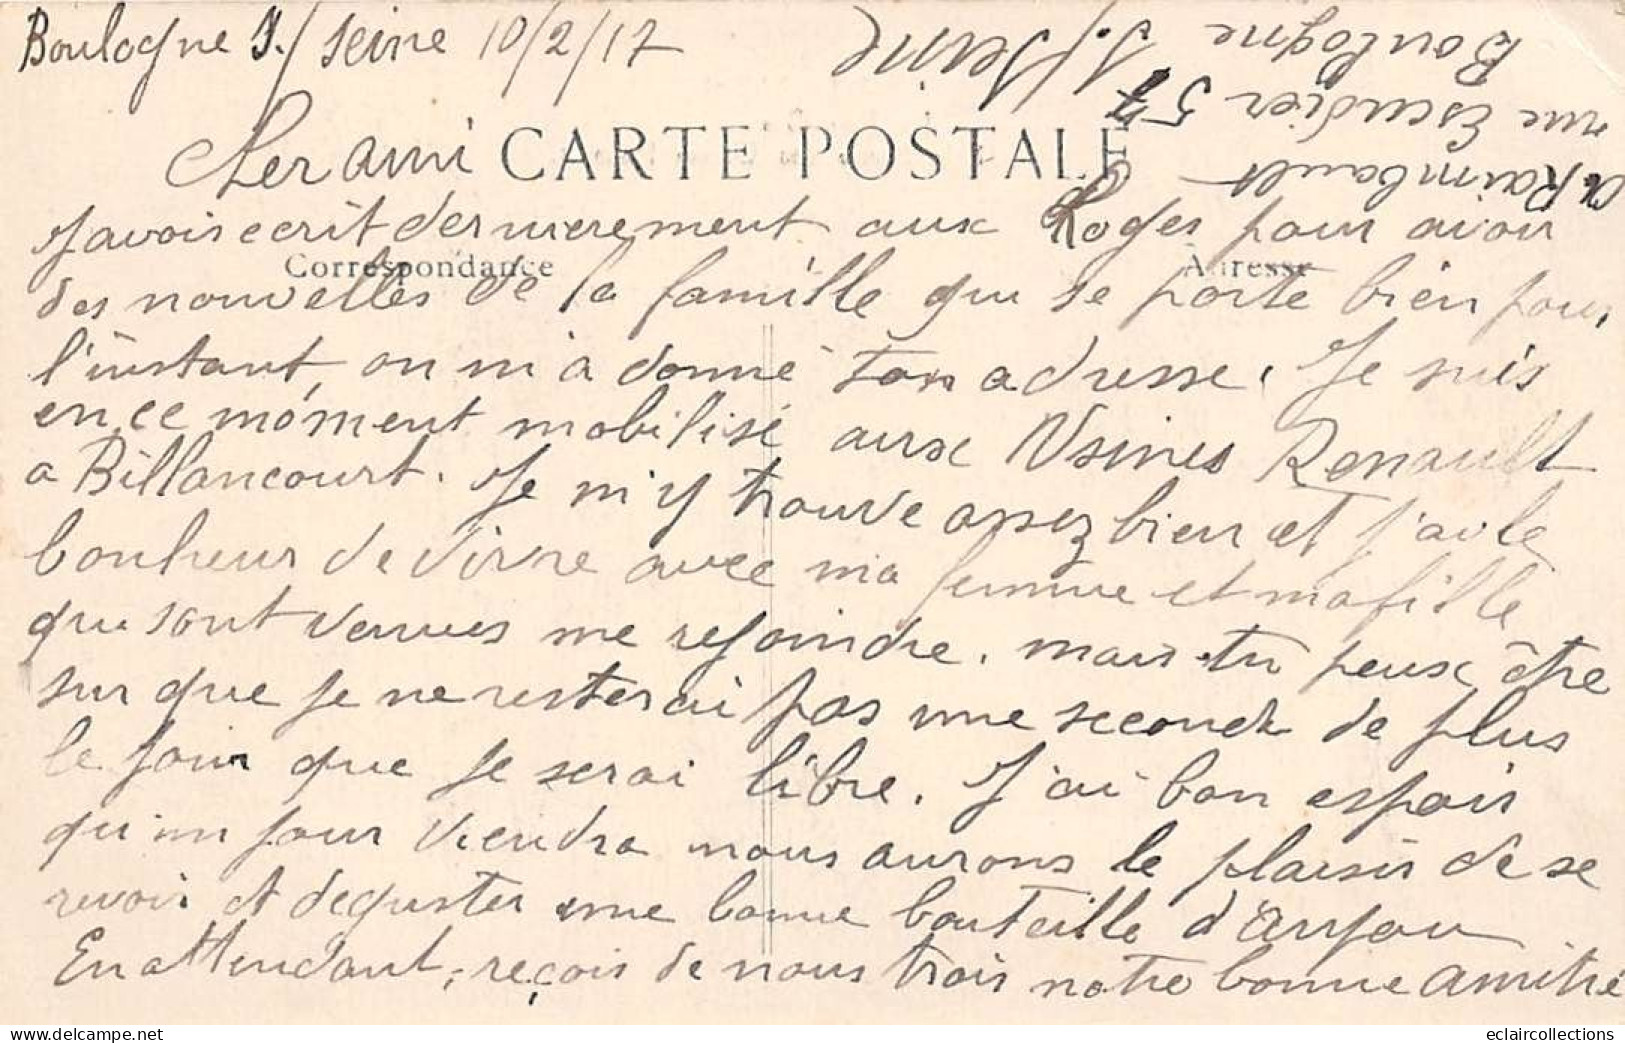 Boulogne S./Seine 10/2/17
A. Raimbault
rue Escudier 57
Boulogne
S./Seine
CARTE POSTALE
Correspondance
Adresse
Cher ami
J'avois ecrit dernierement aux Roges pour avoir
des nouvelles de la famille qui se porte bien pour
l'instant, on m'a donné ton adresse. Je suis
en ce moment mobilisé aux Usines Renault
a Billancourt. Je m'y trouve assez bien et j'ai le
bonheur de vivre avec ma femme et ma fille
qui sont venues me rejoindre. mais tu peux être
sur que je ne resterai pas une seconde de plus
le jour que je serai libre. J'ai bon espoir
qu'un jour viendra nous aurons le plaisir de se
revoir et deguster une bonne bouteille d'Anjou
En attendant, reçois de nous trois notre bonne amitié
eclaircollections